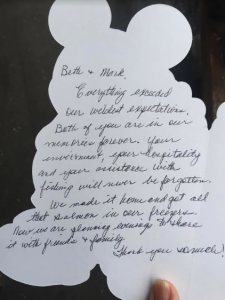 Beth & Mark,
Everything exceeded
our wildest expectations.
Both of you are in our
memories forever. Your
investment, your hospitality
and your assistance with
fishing will never be forgotten.
We made it home and got all
that salmon in our freezers.
Now we are planning evenings to share
it with friends & family.
Thank you so much!